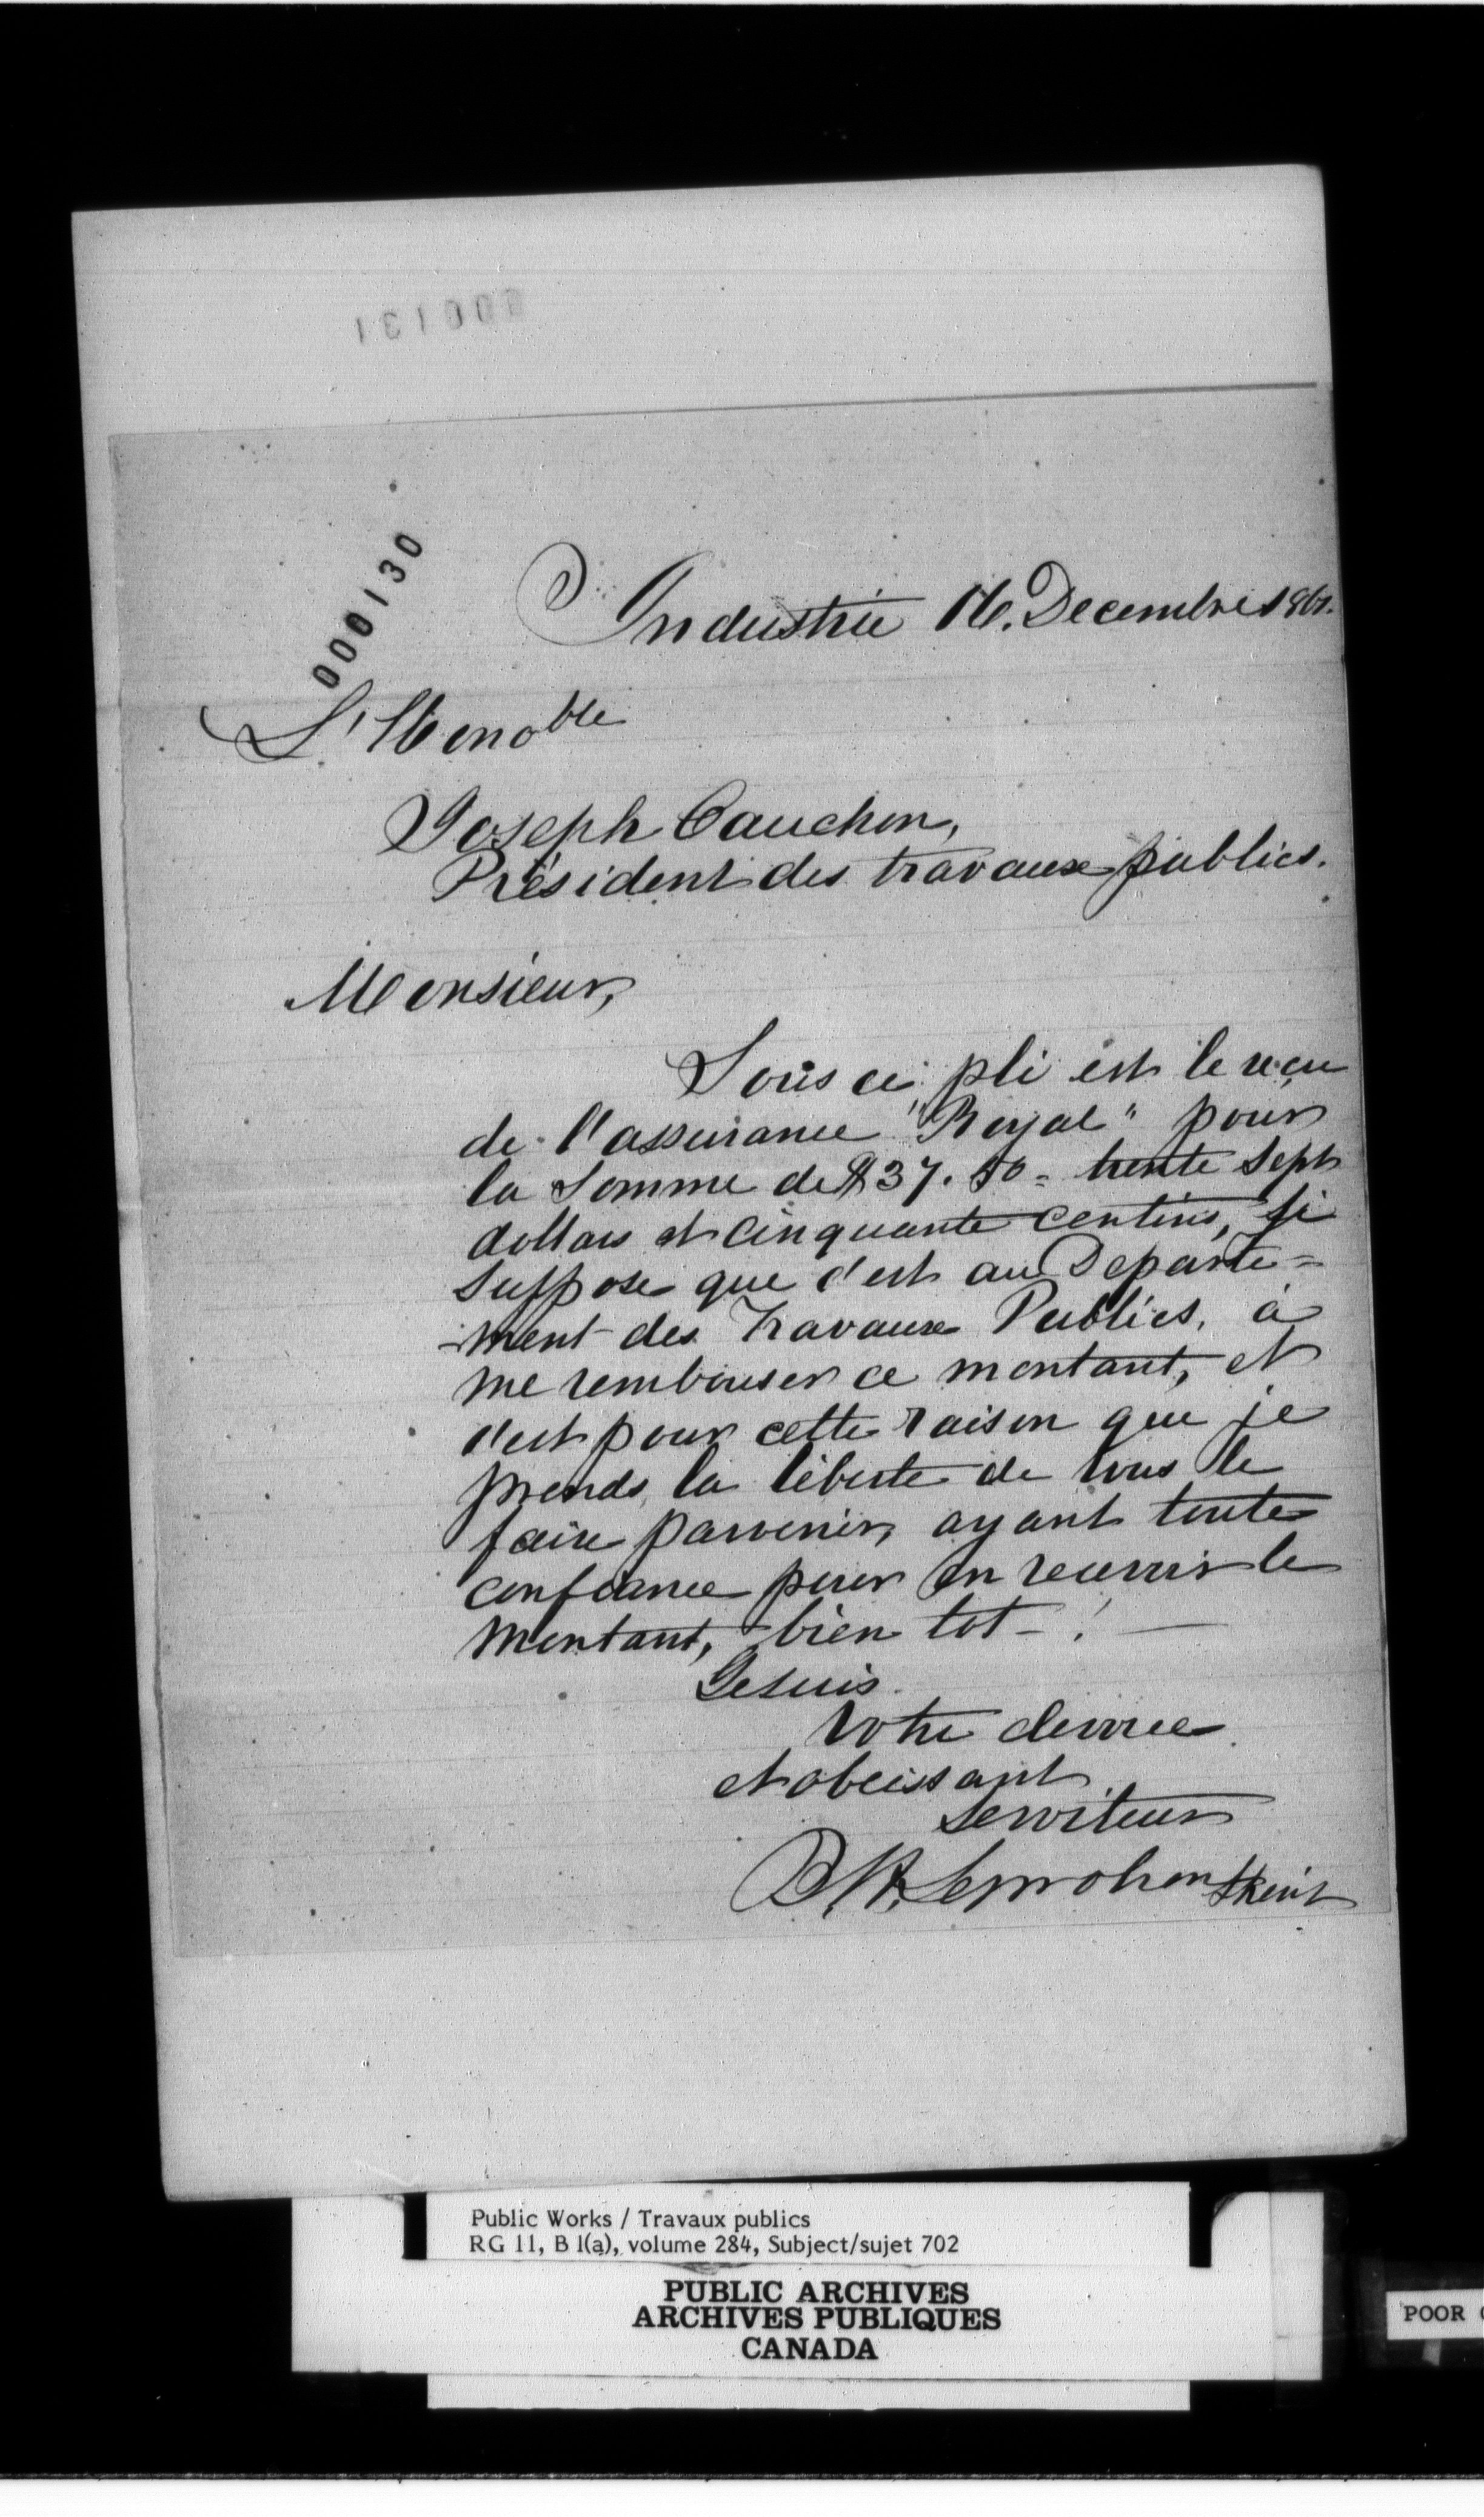 000131
000130
Industrie 16. Decembre 1861.
L'Honoble
Joseph Cauchon,
Président des travaux publics.
Monsieur,
Sous ce pli est le reçu
de l'assurance "Royal" pour
la Somme de $37.50 = trente Sept
dollars et cinquante centins, Je
suppose que c'est au Departe=
-ment des Travaux Publics, à
me rembourser ce montant, et
c'est pour cette raison que je
prends la liberte de vous le
faire parvenir, ayant toute
confiance pour en recevoir le
montant, bien tot - !
Je suis
Votre devoué
et obeissant
Serviteur
B. H. Leprohon
Public Works / Travaux publics
RG 11, B 1(a), volume 284, Subject/sujet 702
PUBLIC ARCHIVES
ARCHIVES PUBLIQUES
CANADA
POOR